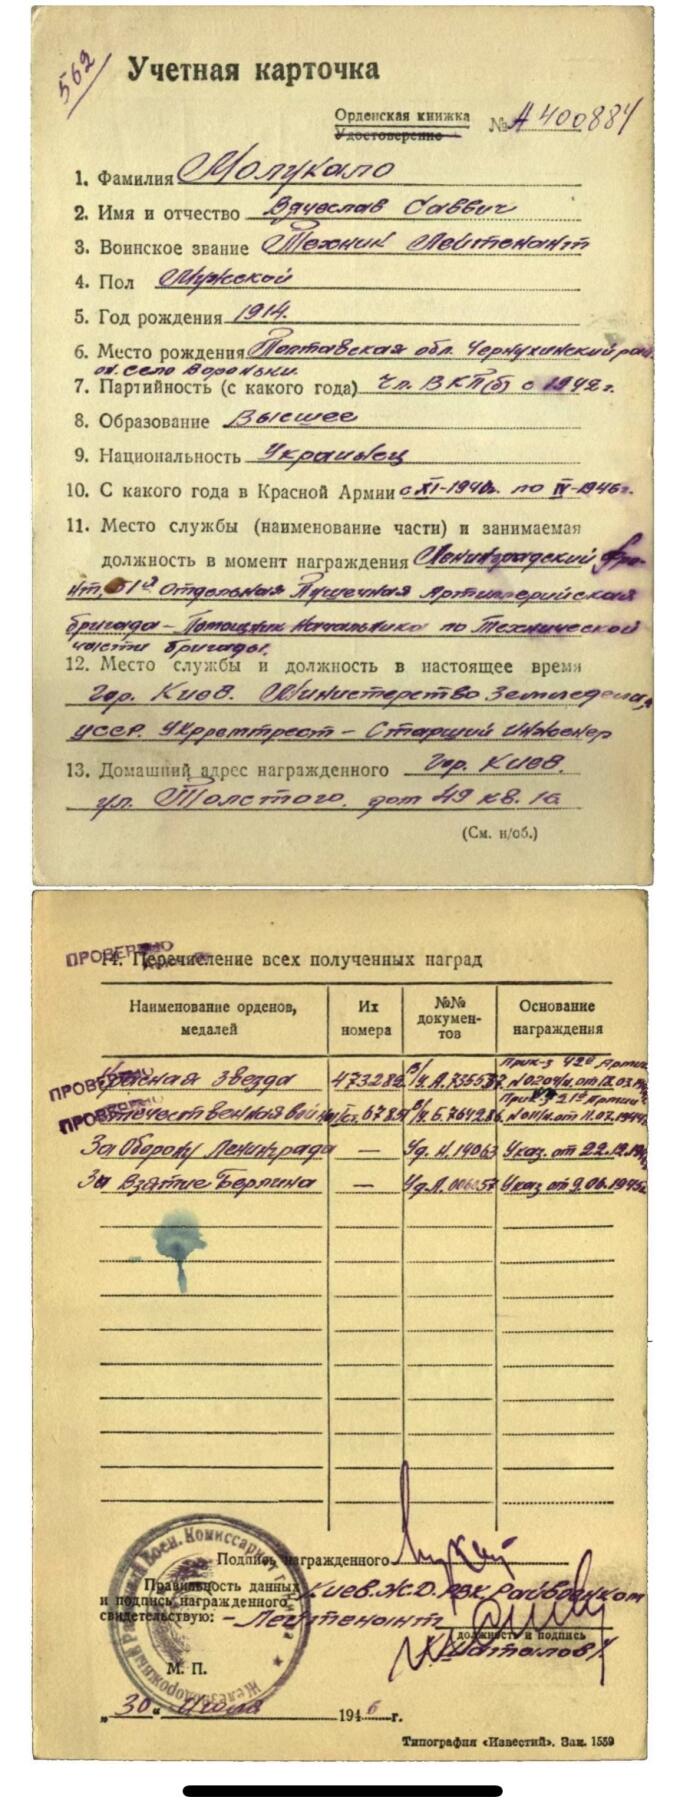 562
Учетная карточка
Орденская книжка
Удостоверение
№ А 400884
1. Фамилия Молукало
2. Имя и отчество Вячеслав Саввич
3. Воинское звание Техник Лейтенант
4. Пол Мужской
5. Год рождения 1914.
6. Место рождения Полтавская обл. Чернухинский рай
он. село Вороньки.
7. Партийность (с какого года) чл. ВКП(б) с 1942 г.
8. Образование Высшее
9. Национальность Украинец
10. С какого года в Красной Армии с XI-1940г. по IV-1946г.
11. Место службы (наименование части) и занимаемая
должность в момент награждения Ленинградский фро-
нт, Отдельная Пушечная Артиллерийская
бригада – Помощник Начальника по Технической
части бригады.
12. Место службы и должность в настоящее время
Гор. Киев. Министерство Земледелия
УССР. Укрремтрест – Старший Инженер
13. Домашний адрес награжденного Гор. Киев.
ул. Толстого. дом 49 кв. 16
(См. н/об.)
ПРОВЕРЕНО
14. Перечисление всех полученных наград
Наименование орденов, медалей
Их номера
№№ документов
Основание награждения
ПРОВЕРЕНО
Красная Звезда 473282 Прик-з 42й Артил.
ПРОВЕРЕНО
Отечественная войны Прик-з 21й Армии от 11.07.1944г.
За Оборону Ленинграда — Уд. Н. 14063 Указ. от 22.12.
За Взятие Берлина — Уд. Л. Указ от 9.06.1945г.
Подпись награжденного
Правильность данных и подпись награжденного свидетельствую: Киев. Ж.Д. РВК. Райвоенком
– Лейтенант
должность и подпись
Шаталов
Железнодорожный Воен. Комиссариат г.
М. П.
„30“ Июля 1946 г.
Типография «Известий». Зак. 1559